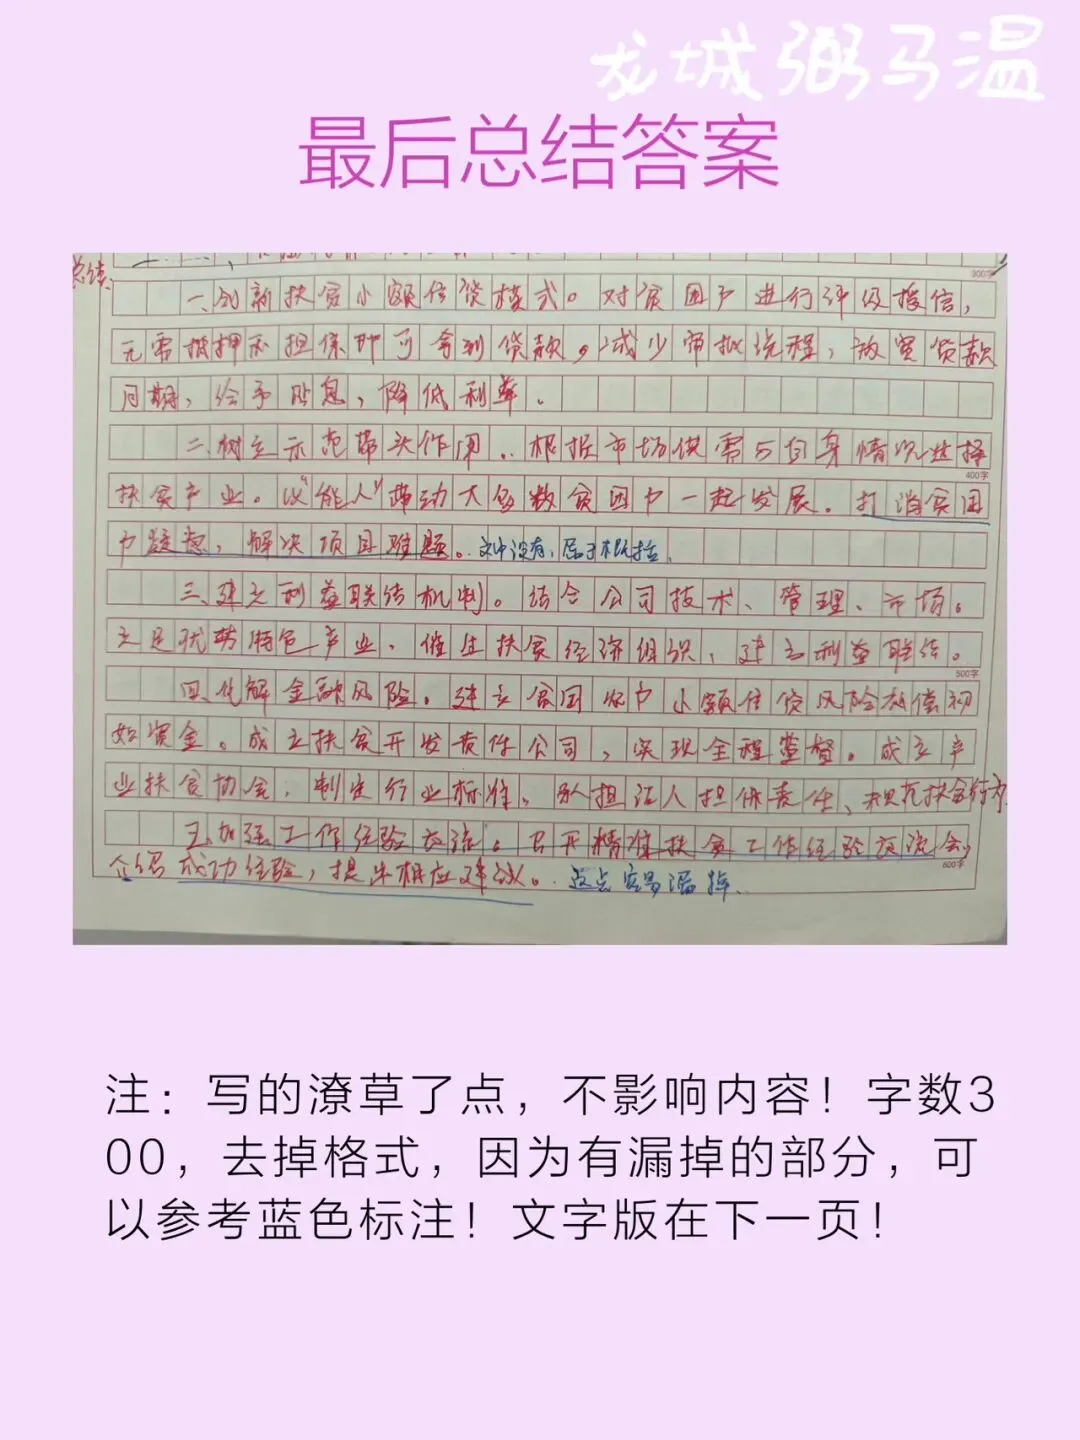 龙城弼马温
最后总结答案
总结:
300字
一、创新扶贫小额信贷模式。对贫困户进行评级授信,
无需抵押和担保即可拿到贷款。减少审批流程,放宽贷款
周期,给予贴息,降低利率.
二、树立示范带头作用.根据市场供需与自身情况选择
400字
扶贫产业。以"能人"带动大多数贫困户一起发展。打消贫困
户疑虑,解决项目难题。文中没有,属于概括.
三、建立利益联结机制。结合公司技术、管理、市场。
立足优势特色产业、催生扶贫经济组织、建立利益联结。
500字
四、化解金融风险。建立贫困农户小额信贷风险补偿初
始资金。成立扶贫开发责任公司,实现全程监督。成立产
业扶贫协会,制定行业标准、承担证人担保责任、规范扶贫行为
五、加强工作经验交流。召开精准扶贫工作经验交流会,
600字
介绍成功经验,提出相应建议。这点容易漏掉.
注：写的潦草了点，不影响内容！字数3
00，去掉格式，因为有漏掉的部分，可
以参考蓝色标注！文字版在下一页！